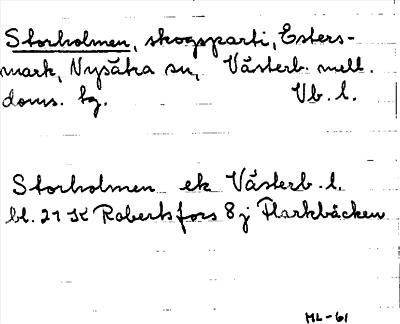 Storholmen, skogsparti, Esters-
mark, Nysätra sn, Västerb. mell.
doms. hg. Vb. l.
Storholmen ek Västerb. l.
bl. 21 K Robertsfors 8 j Flarkbäcken
ML-61